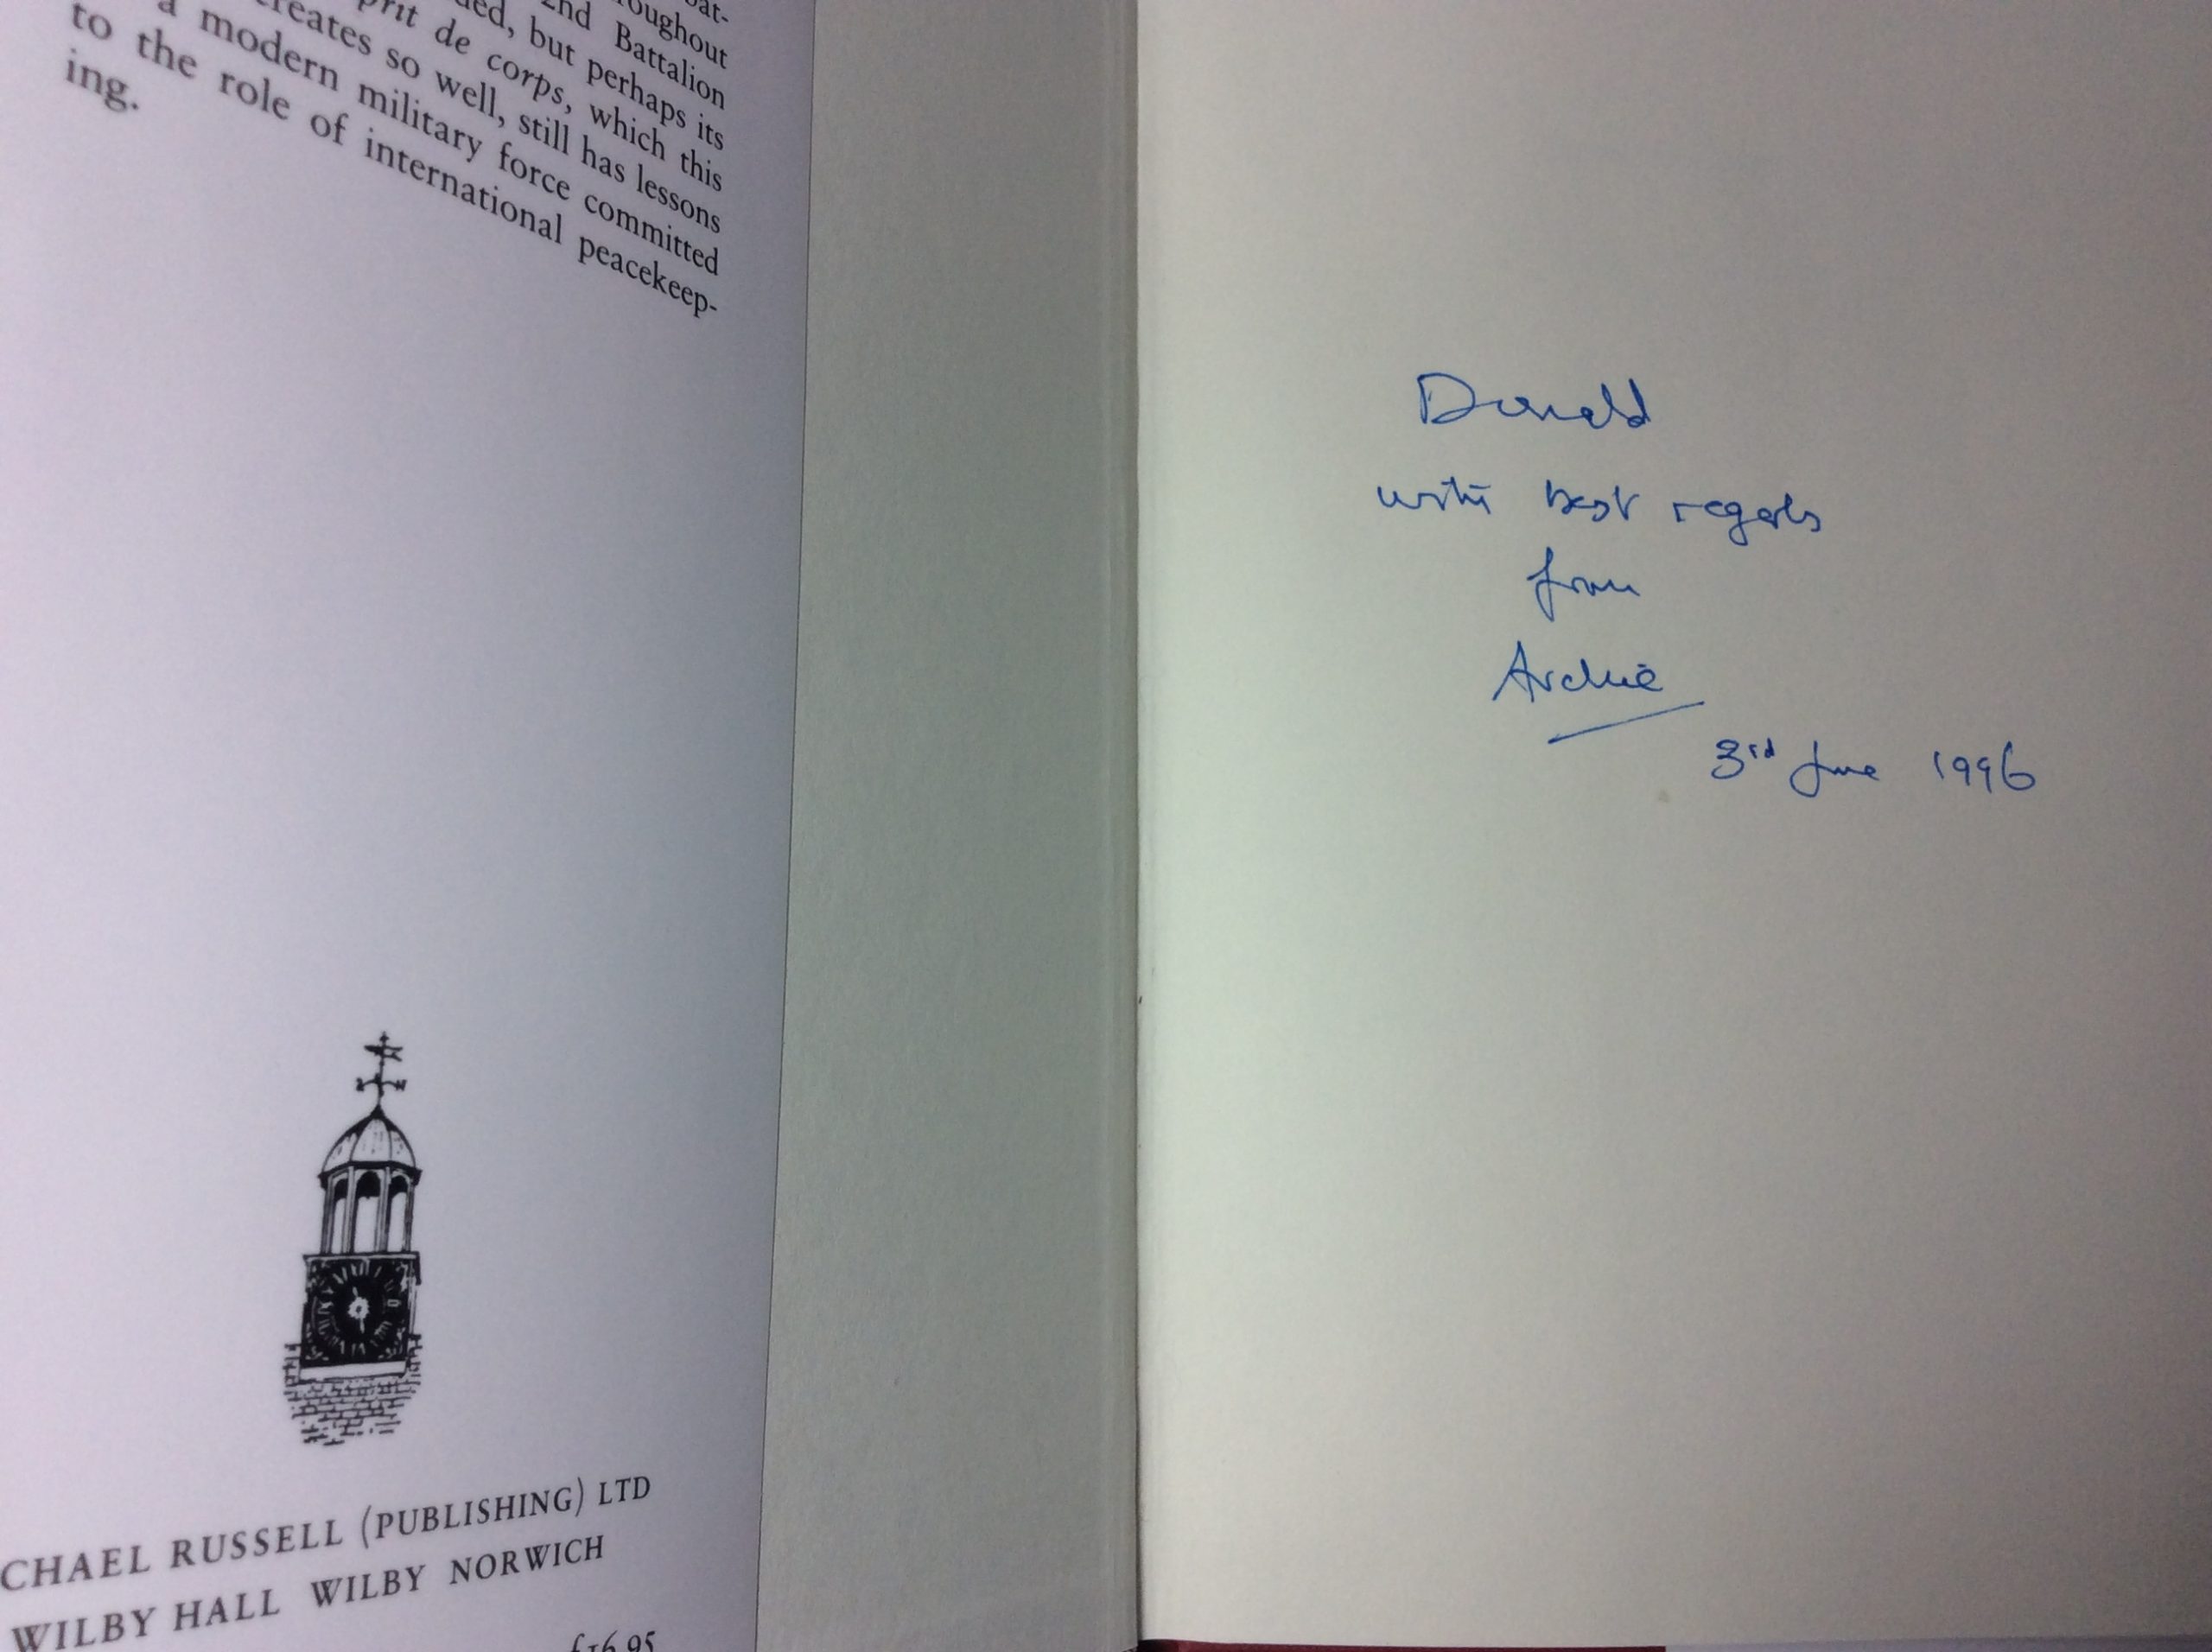 bat-
roughout
2nd Battalion
ded, but perhaps its
prit de corps, which this
creates so well, still has lessons
a modern military force committed
to the role of international peacekeep-
ing.
CHAEL RUSSELL (PUBLISHING) LTD
WILBY HALL WILBY NORWICH
£16.95
Donald
with best regards
from
Archie
3rd June 1996